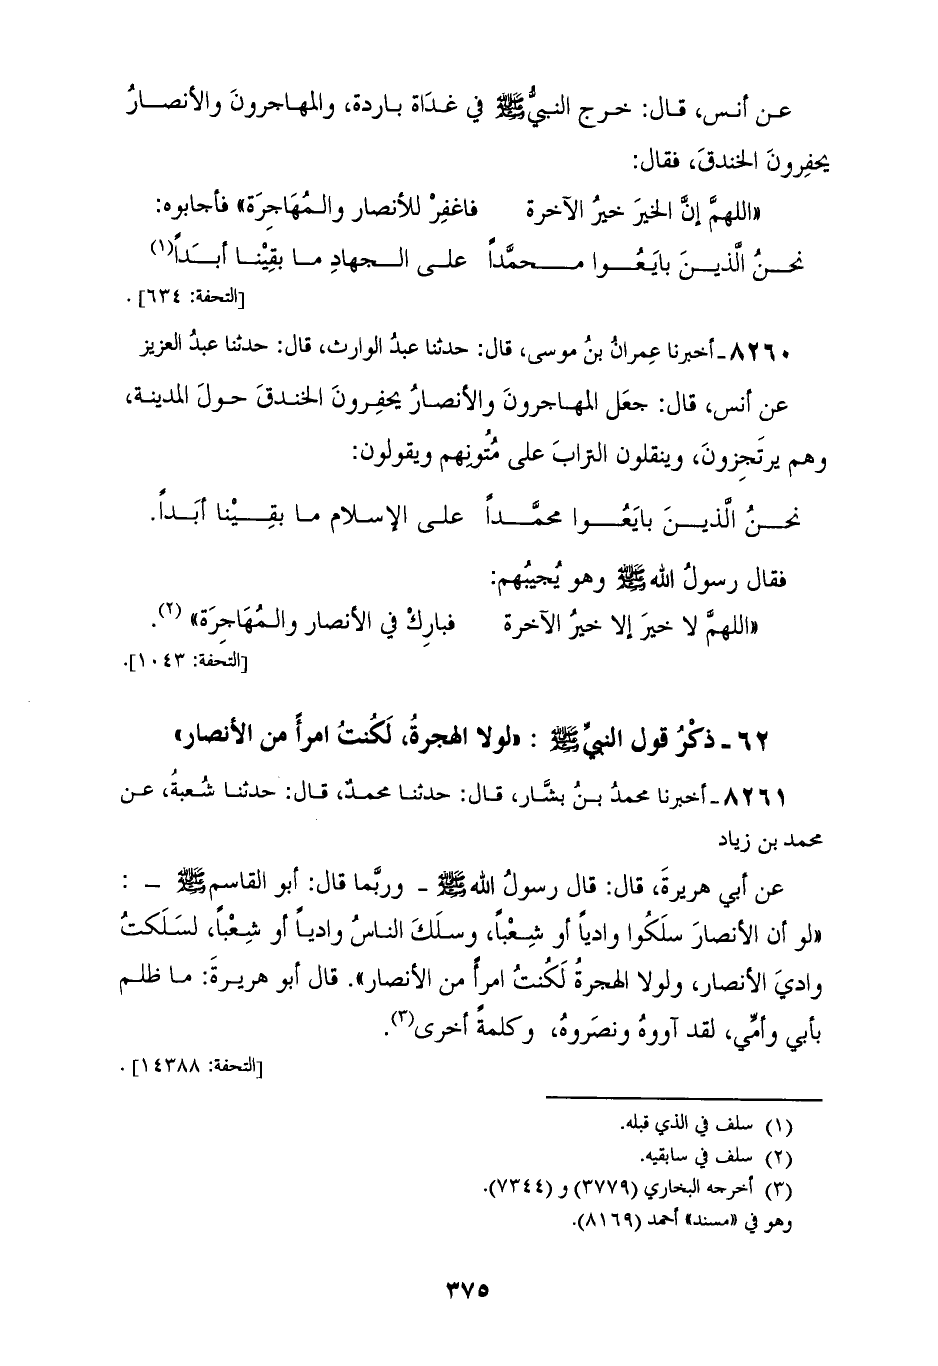 عـن أنـس، قـال: خـرج النـبيُّ ﷺ في غـدَاة بـاردة، والمهـاجرونَ والأنصـارُ
يحفِرونَ الخندقَ، فقال:
«اللهمَّ إنَّ الخيرَ خيرُ الآخرة فاغفِرْ للأنصار والـمُهَاجِرَة» فأجابوه:
نحـنُ الَّذيـنَ بايَعُـوا مـحمَّداً علـى الـجهادِ مـا بقِيْنـا أبـَداً(١)
[التحفة: ٦٣٤] .
٨٢٦٠ـ أخبرنا عِمرانُ بنُ موسى، قال: حدثنا عبدُ الوارث، قال: حدثنا عبدُ العزيز
عن أنس، قال: جعَل المهـاجرونَ والأنصـارُ يحفِرونَ الخنـدقَ حـولَ المدينـة،
وهم يرتَجِزونَ، وينقلون الترابَ على مُتُونِهم ويقولون:
نحـنُ الَّذيـنَ بايَعُـوا محمَّـداً علـى الإسـلام مـا بقِـيْنا أبَـداً.
فقال رسولُ الله ﷺ وهو يُجيبُهم:
«اللهمَّ لا خيرَ إلا خيرُ الآخرة فبارِكْ في الأنصار والـمُهَاجِرَة» (٢).
[التحفة: ١٠٤٣].
٦٢ـ ذكْرُ قول النبيِّ ﷺ : «لولا الهجرةُ، لَكُنتُ امرأً من الأنصار»
٨٢٦١ـ أخبرنا محمدُ بـنُ بشَّار، قـال: حدثنـا محمدٌ، قال: حدثنـا شُعبةُ، عـن
محمد بن زياد
عن أبي هريرةَ، قال: قال رسولُ الله ﷺ ـ وربَّما قال: أبو القاسم ﷺ ـ :
«لو أن الأنصارَ سلَكُوا وادياً أو شِعْباً، وسلَكَ الناسُ وادياً أو شِعْباً، لسَلَكتُ
واديَ الأنصار، ولولا الهجرةُ لَكُنتُ امرأً من الأنصار». قال أبو هريـرةَ: مـا ظلـم
بأبي وأمِّي، لقد آووهُ ونصَروهُ، وكلمةً أخرى(٣).
[التحفة: ١٤٣٨٨] .
(١) سلف في الذي قبله.
(٢) سلف في سابقيه.
(٣) أخرجه البخاري (٣٧٧٩) و (٧٢٤٤).
وهو في «مسند» أحمد (٨١٦٩).
٣٧٥